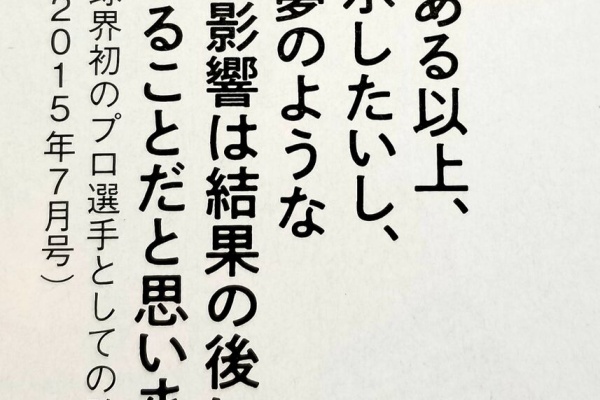 ある以上、
したいし、
夢のような
影響は結果の後
ることだと思いま
球界初のプロ選手としての
2015年7月号）